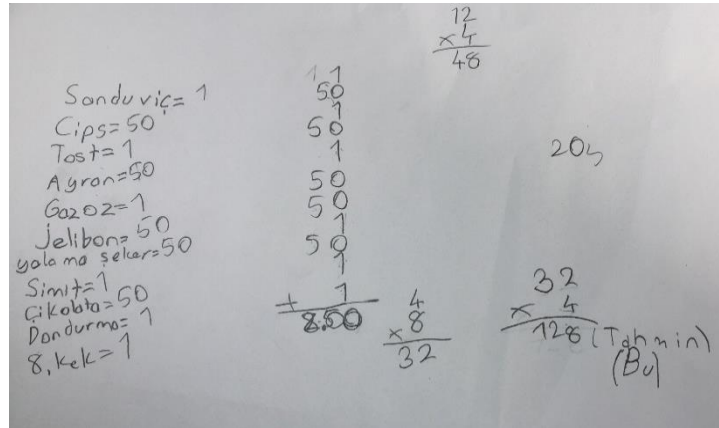 12
x4
48
Sanduviç=1
Cips=50
Tost=1
Ayran=50
Gazoz=1
Jelibon=50
yalama şeker=50
Simit=1
Çikolata=50
Dondurma=1
8,kek=1
1 1
50
1
50
1
50
50
1
50
1
+ 1
8.50
4
x8
32
32
x 4
128 (Tahmin)
(Bu)